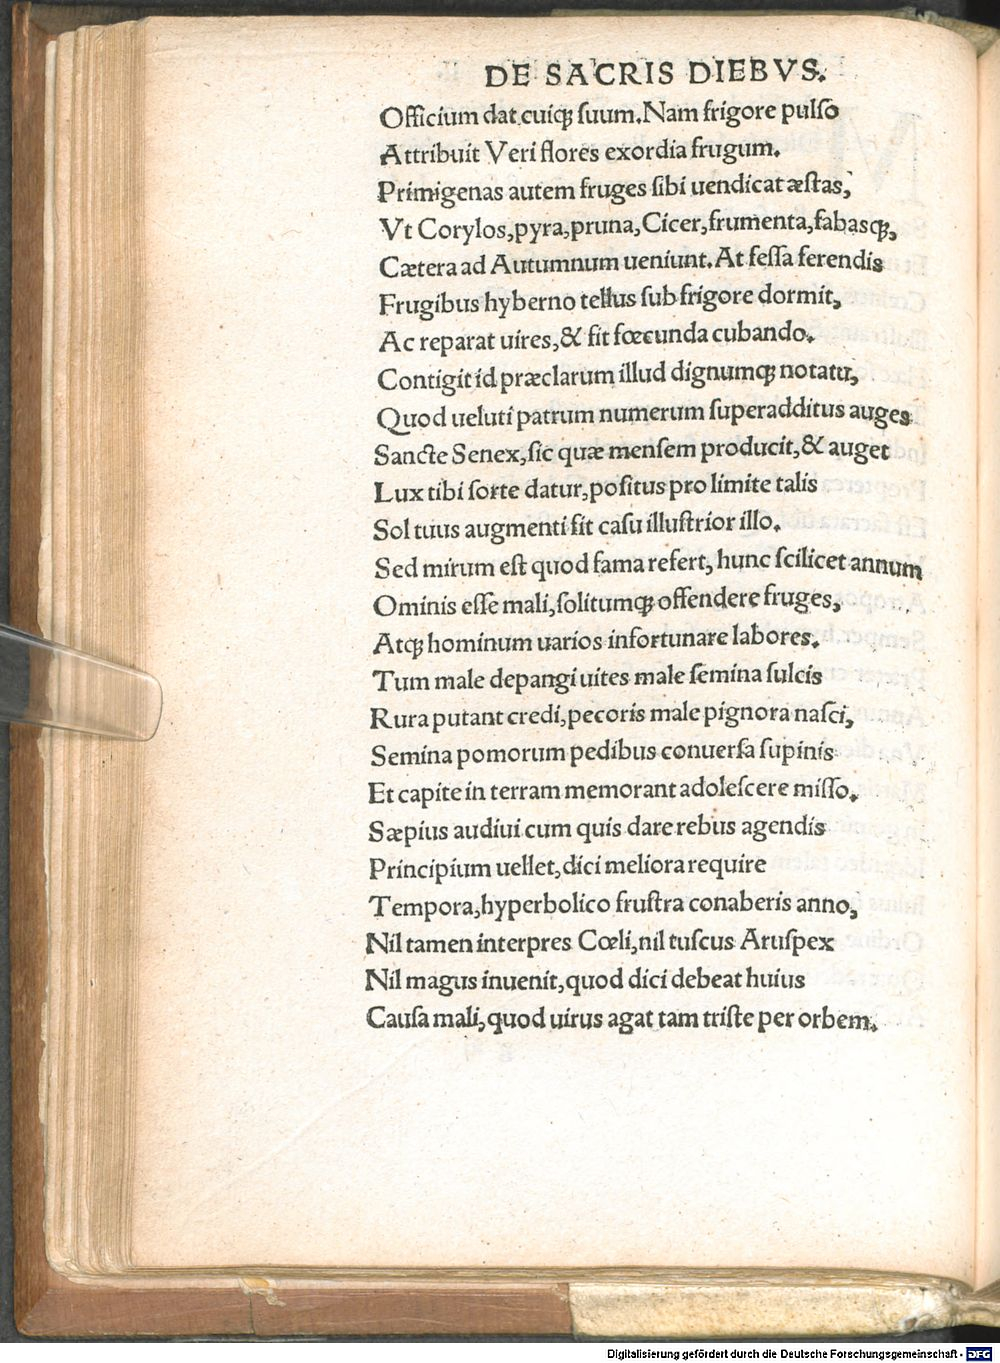 DE SACRIS DIEBVS.
Officium dat cuiqꝫ ſuum. Nam frigore pulſo
Attribuit Veri flores exordia frugum.
Primigenas autem fruges ſibi uendicat æſtas,
Vt Corylos, pyra, pruna, Cicer, frumenta, fabasqꝫ,
Cætera ad Autumnum ueniunt. At feſſa ferendis
Frugibus hyberno tellus ſub frigore dormit,
Ac reparat uires, & fit fœcunda cubando.
Contigit id præclarum illud dignumqꝫ notatu,
Quod ueluti patrum numerum ſuperadditus auges
Sancte Senex, ſic quæ menſem producit, & auget
Lux tibi ſorte datur, poſitus pro limite talis
Sol tuus augmenti fit caſu illuſtrior illo.
Sed mirum eſt quod fama refert, hunc ſcilicet annum
Ominis eſſe mali, ſolitumqꝫ offendere fruges,
Atqꝫ hominum uarios infortunare labores.
Tum male depangi uites male ſemina ſulcis
Rura putant credi, pecoris male pignora naſci,
Semina pomorum pedibus conuerſa ſupinis
Et capite in terram memorant adoleſcere miſſo.
Sæpius audiui cum quis dare rebus agendis
Principium uellet, dici meliora require
Tempora, hyperbolico fruſtra conaberis anno,
Nil tamen interpres Cœli, nil tuſcus Aruſpex
Nil magus inuenit, quod dici debeat huius
Cauſa mali, quod uirus agat tam triſte per orbem.
Digitalisierung gefördert durch die Deutsche Forschungsgemeinschaft - DFG